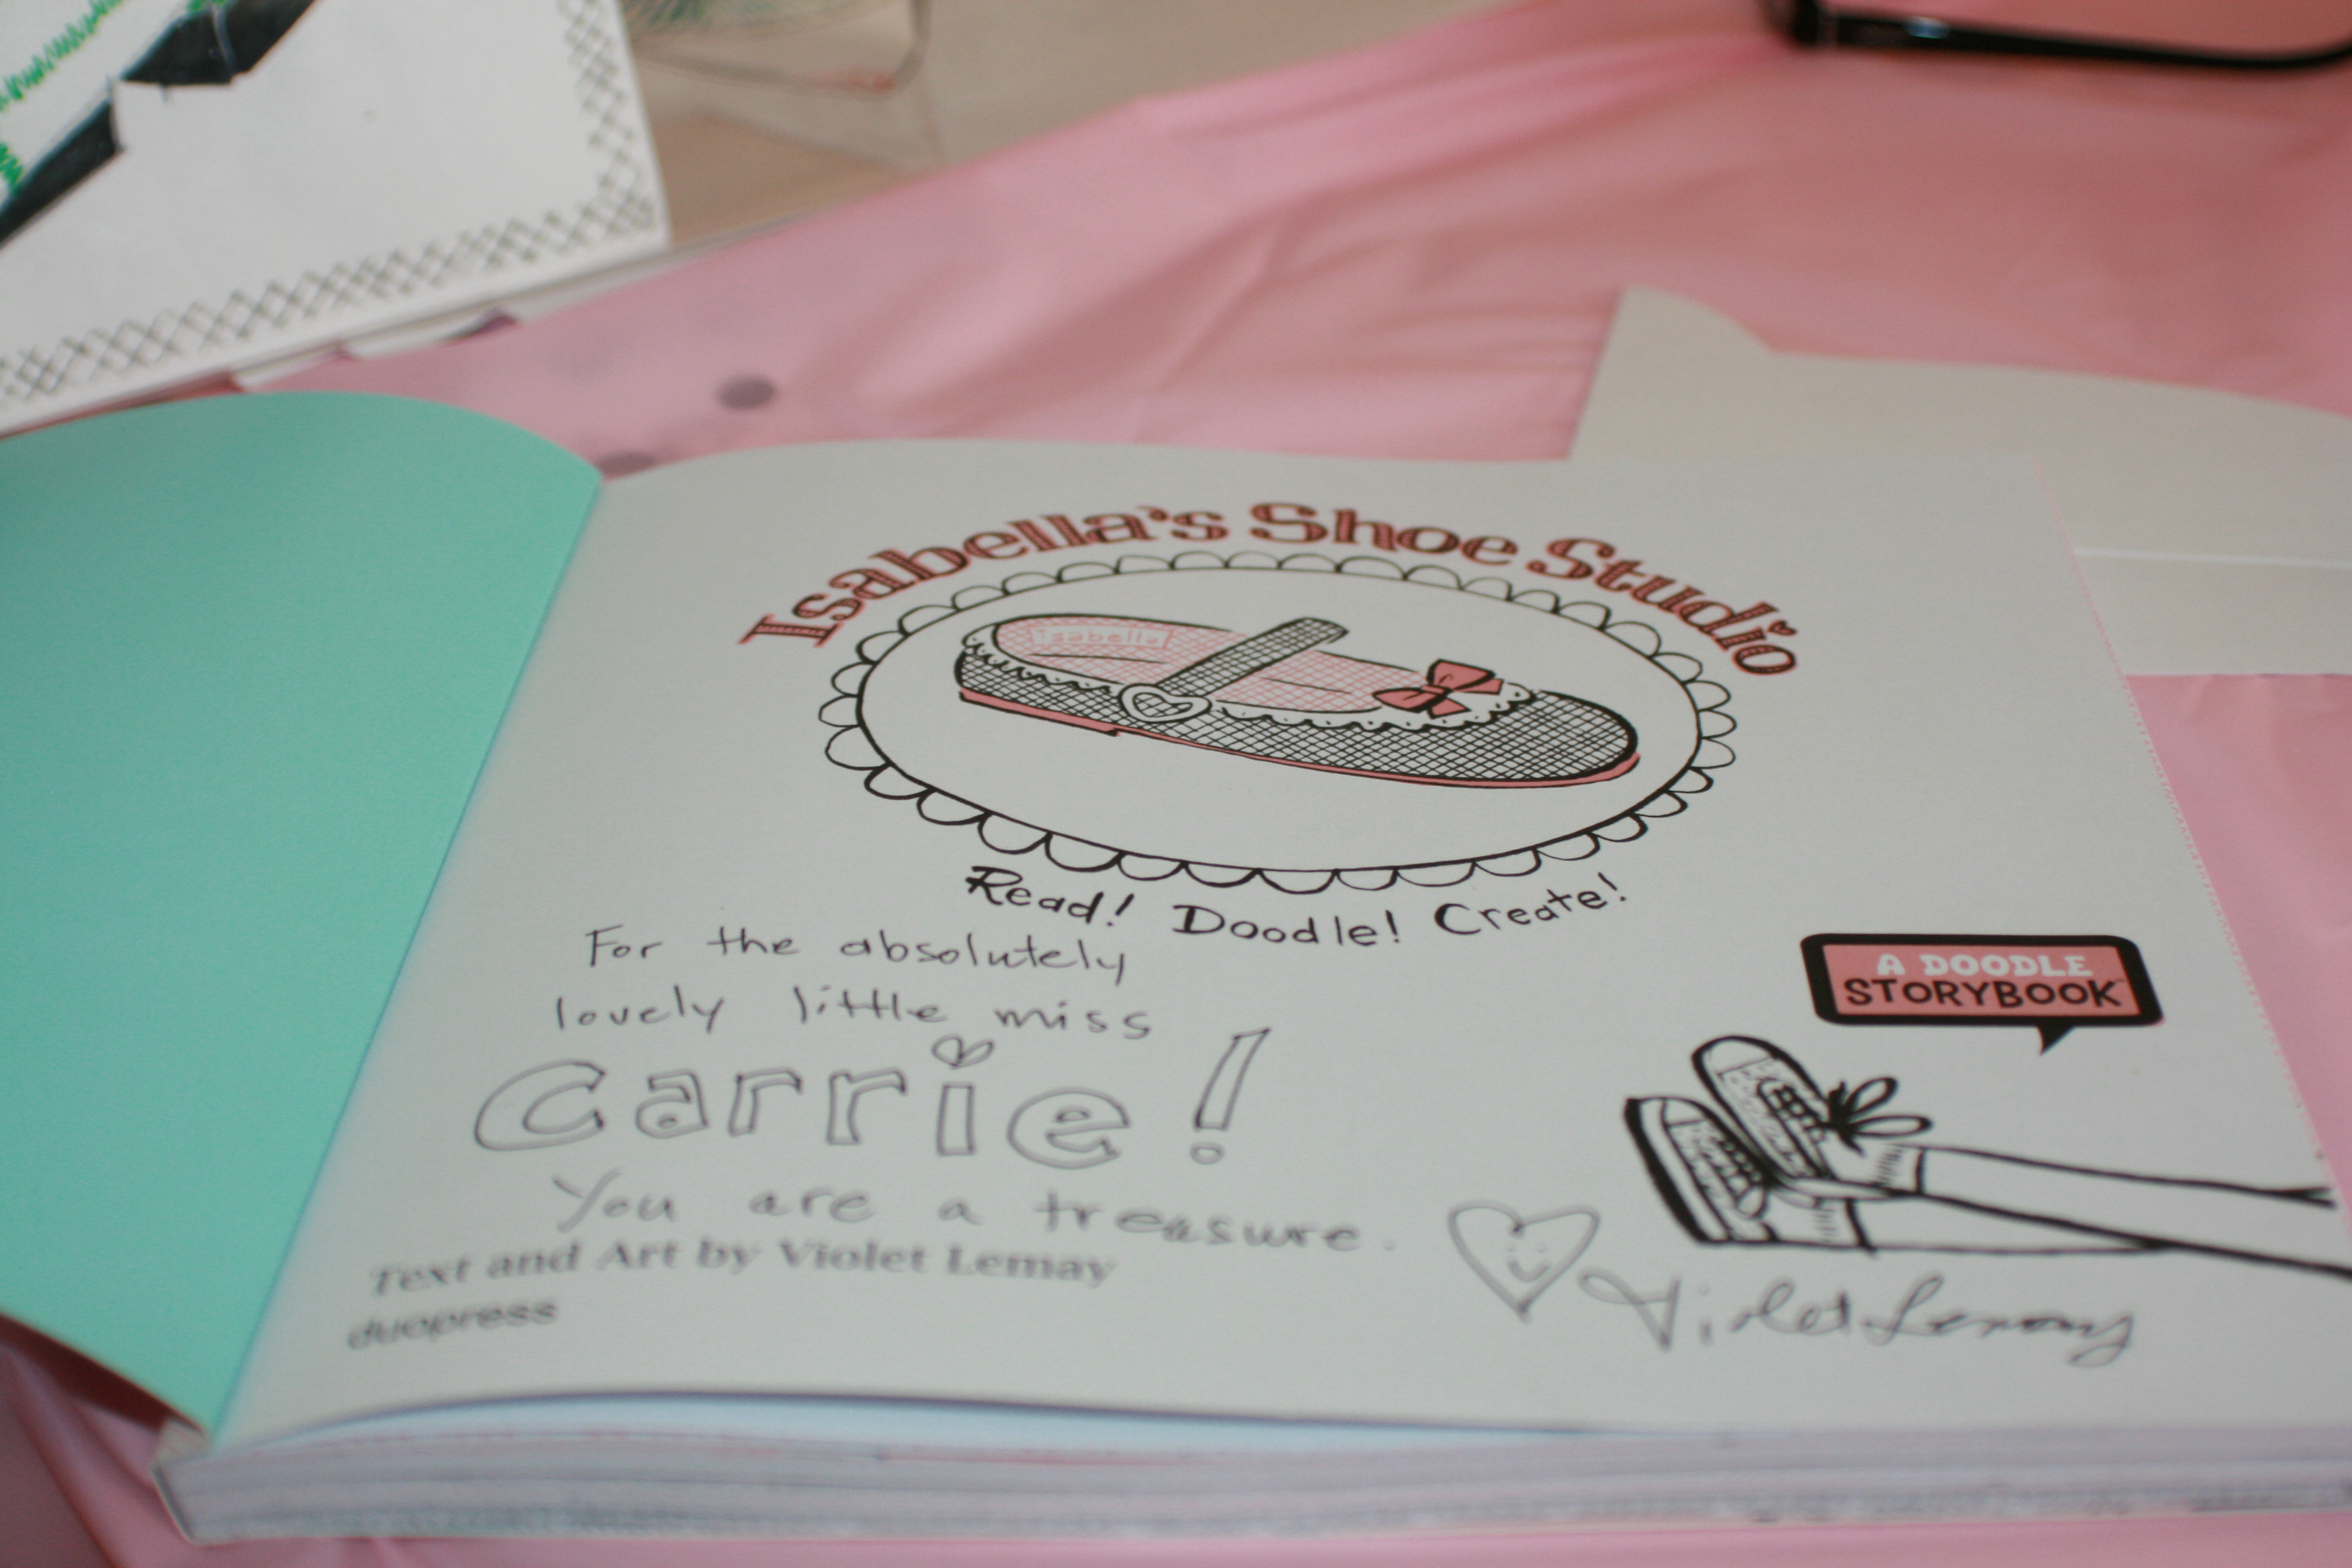 Isabella's Shoe Studio
Isabella
Read! Doodle! Create!
For the absolutely
lovely little miss
Carrie!
You are a treasure.
A DOODLE
STORYBOOK™
Text and Art by Violet Lemay
duopress
Violet Lemay